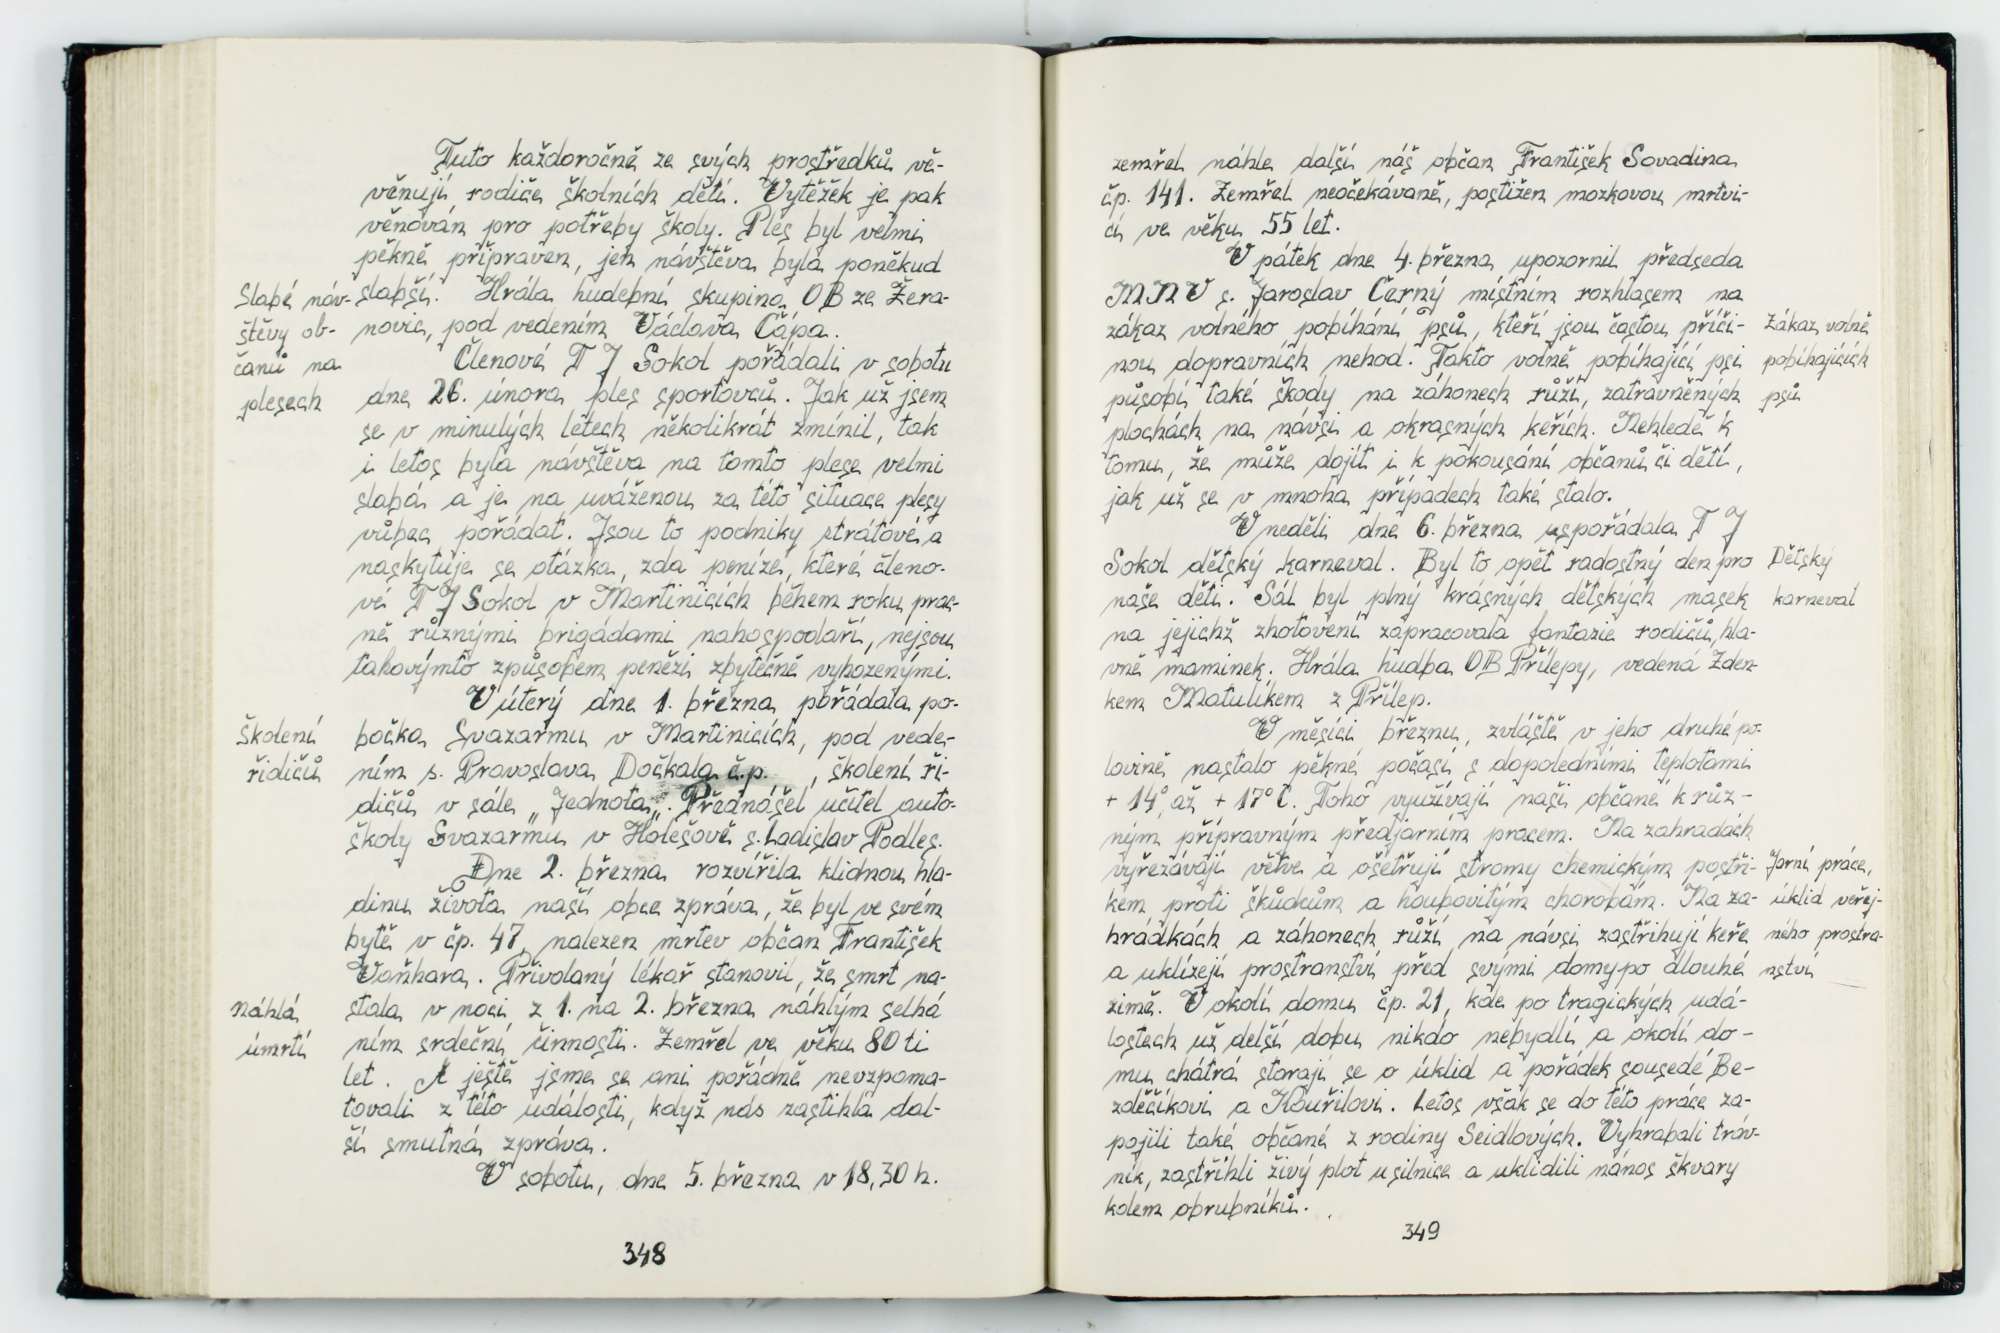 Tuto každoročně ze svých prostředků vě-
věnují rodiče školních dětí. Výtěžek je pak
věnován pro potřeby školy. Ples byl velmi
pěkně připraven, jen návštěva byla poněkud
slabší. Hrála hudební skupina OB ze Žera-
novic, pod vedením Václava Čápa.
Slabé náv-
štěvy ob-
čanů na
plesech
Členové T J Sokol pořádali v sobotu
dne 26. února ples sportovců. Jak už jsem
se v minulých létech několikrát zmínil, tak
i letos byla návštěva na tomto plese velmi
slabá a je na uváženou za této situace plesy
vůbec pořádat. Jsou to podniky ztrátové a
naskytuje se otázka, zda peníze, které členo-
vé T J Sokol v Martinicích během roku prac-
ně různými brigádami nahospodaří, nejsou
takovýmto způsobem penězi zbytečně vyhozenými.
V úterý dne 1. března pořádala po-
bočka Svazarmu v Martinicích, pod vede-
ním s. Pravoslava Dočkala č.p. , školení ři-
dičů v sále „Jednota„. Přednášel učitel auto-
školy Svazarmu v Holešově s. Ladislav Podles.
Školení
řidičů
Dne 2. března rozvířila klidnou hla-
dinu života naší obce zpráva, že byl ve svém
bytě v čp. 47, nalezen mrtev občan František
Vaňhara. Přivolaný lékař stanovil, že smrt na-
stala v noci z 1. na 2. března náhlým selhá
ním srdeční činnosti. Zemřel ve věku 80 ti
let. A ještě jsme se ani pořádně nevzpama-
tovali z této události, když nás zastihla dal-
ší smutná zpráva.
Náhlá
úmrtí
V sobotu, dne 5. března v 18,30 h.
348
zemřel náhle další náš občan František Sovadina
čp. 141. Zemřel neočekávaně, postižen mozkovou mrtvi-
cí ve věku 55 let.
V pátek dne 4. března upozornil předseda
M N V s. Jaroslav Černý místním rozhlasem na
zákaz volného pobíhání psů, kteří jsou častou příči-
nou dopravních nehod. Takto volně pobíhající psi
působí také škody na záhonech růží, zatravněných
plochách na návsi a okrasných keřích. Nehledě k
tomu, že může dojít i k pokousání občanů či dětí,
jak už se v mnoha případech také stalo.
Zákaz volně
pobíhajících
psů
V neděli dne 6. března uspořádala T J
Sokol dětský karneval. Byl to opět radostný den pro
naše děti. Sál byl plný krásných dětských masek
na jejichž zhotovení zapracovala fantazie rodičů, hla-
vně maminek. Hrála hudba OB Přílepy, vedená Zden-
kem Matulíkem z Přílep.
Dětský
karneval
V měsíci březnu, zvláště v jeho druhé po-
lovině nastalo pěkné počasí s dopoledními teplotami
+ 14° až + 17° C. Toho využívají naši občané k růz-
ným přípravným předjarním pracem. Na zahradách
vyřezávají větve a ošetřují stromy chemickým postři-
kem proti škůdcům a houbovitým chorobám. Na za-
hrádkách a záhonech růží na návsi zastřihují keře
a uklízejí prostranství před svými domy po dlouhé
zimě. V okolí domu čp. 21, kde po tragických udá-
lostech už delší dobu nikdo nebydlí a okolí do-
mu chátrá starají se o úklid a pořádek sousedé Be-
zděčíkovi a Kouřilovi. Letos však se do této práce za-
pojili také občané z rodiny Seidlových. Vyhrabali tráv-
ník, zastřihli živý plot u silnice a uklidili nános škváry
kolem obrubníků.
Jarní práce,
úklid veřej-
ného prostra-
nství
349